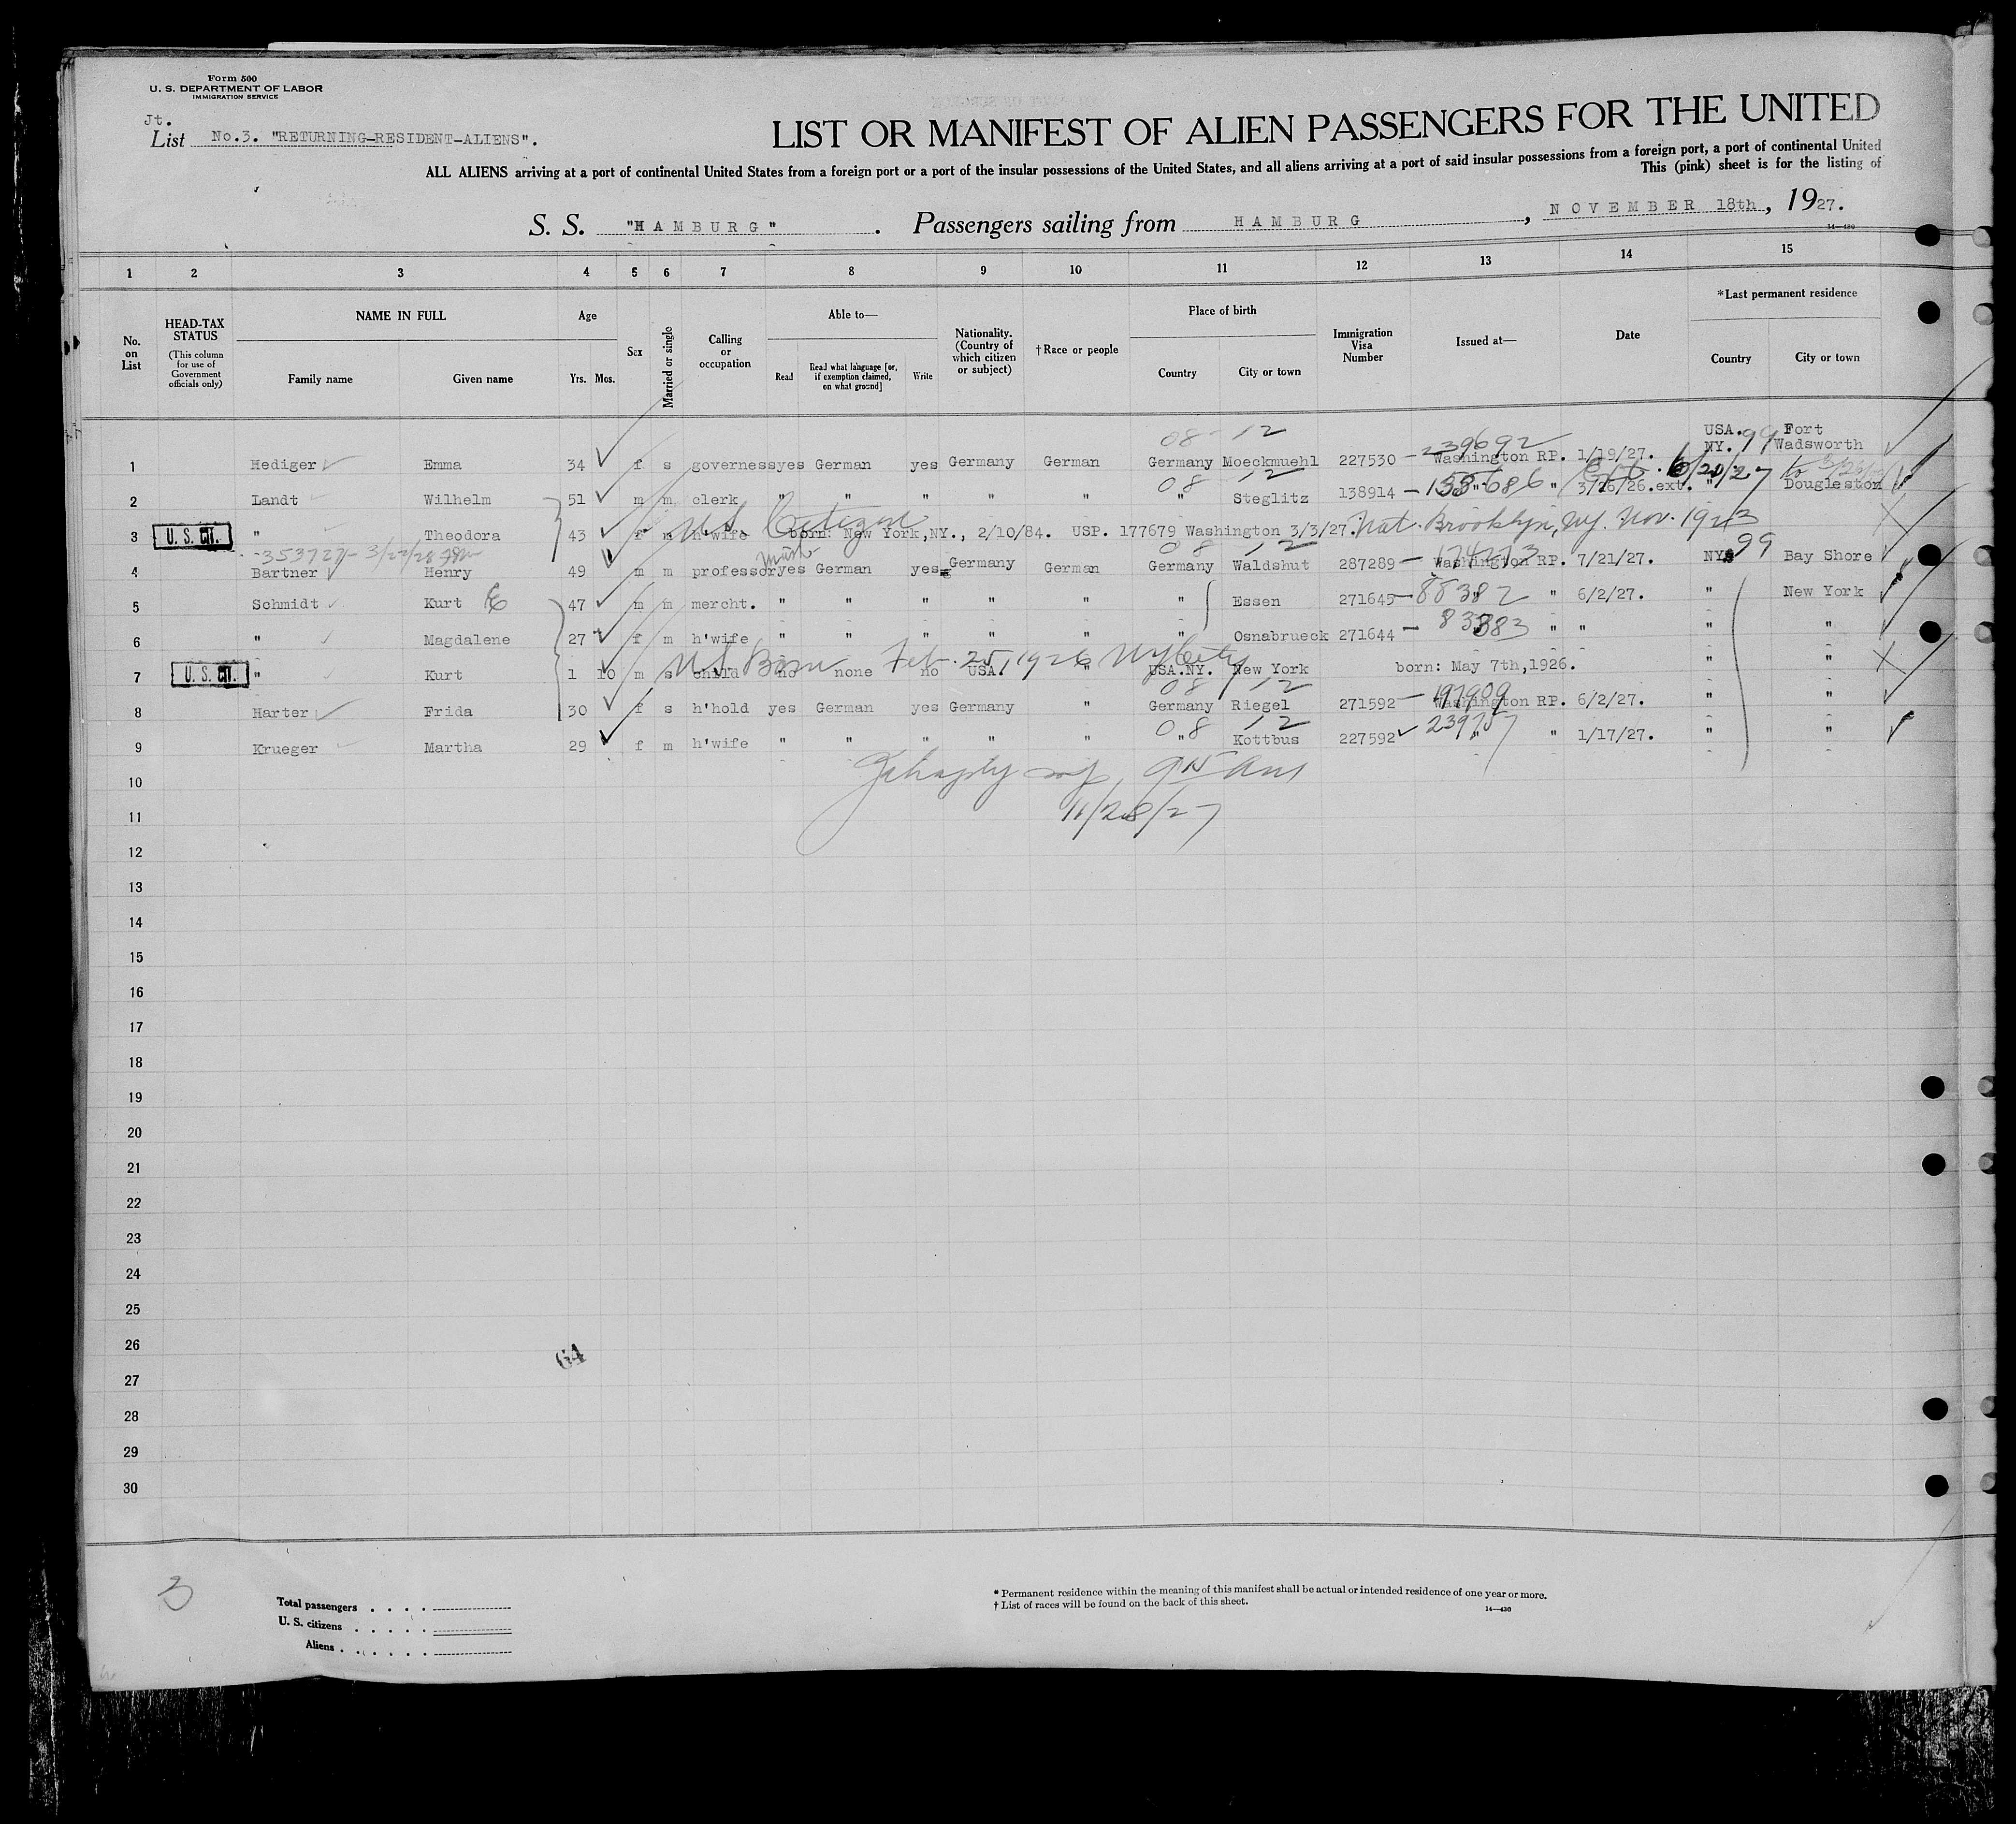 Form 500
U. S. DEPARTMENT OF LABOR
IMMIGRATION SERVICE
Jt.
List No.3. "RETURNING-RESIDENT-ALIENS".
LIST OR MANIFEST OF ALIEN PASSENGERS FOR THE UNITED
ALL ALIENS arriving at a port of continental United States from a foreign port or a port of the insular possessions of the United States, and all aliens arriving at a port of said insular possessions from a foreign port, a port of continental United
This (pink) sheet is for the listing of
S. S. "HAMBURG". Passengers sailing from HAMBURG, NOVEMBER 18th, 1927.
14—430
1 2 3 4 5 6 7 8 9 10 11 12 13 14 15
No. on List
HEAD-TAX STATUS (This column for use of Government officials only)
NAME IN FULL
Family name Given name
Age
Yrs. Mos.
Sex
Married or single
Calling or occupation
Able to—
Read
Read what language [or, if exemption claimed, on what ground]
Write
Nationality. (Country of which citizen or subject)
† Race or people
Place of birth
Country City or town
Immigration Visa Number
Issued at—
Date
*Last permanent residence
Country City or town
08 - 12 239692 USA. 99 Fort
NY. Wadsworth
1 Hediger Emma 34 f s governess yes German yes Germany German Germany Moeckmuehl 227530 — Washington RP. 1/19/27.
08 12 6/20/27
2 Landt Wilhelm 51 m m clerk " " " " " " Steglitz 138914 — " " 3/26/26.ext. " Douglaston
U S Citizen
U. S. CIT.
3 " Theodora 43 f m h'wife born: New York,NY., 2/10/84. USP. 177679 Washington 3/3/27. Nat. Brooklyn, NY. Nov. 1923
353727 - 3/27/28
Music 08 12 99
4 Bartner Henry 49 m m professor yes German yes Germany German Germany Waldshut 287289 — Washington RP. 7/21/27. NY. Bay Shore
5 Schmidt Kurt E 47 m m mercht. " " " " " " Essen 271645 — 88382 " 6/2/27. " New York
6 " Magdalene 27 f m h'wife " " " " " " Osnabrueck 271644 — " " " "
U.S. Born Feb. 25, 1926 NY City
U. S. CIT.
7 " Kurt 1 10 m s child no none no USA. " USA.NY. New York born: May 7th,1926. " "
08 12 197909
8 Harter Frida 30 f s h'hold yes German yes Germany " Germany Riegel 271592 — Washington RP. 6/2/27. " "
08 12 239757
9 Krueger Martha 29 f m h'wife " " " " " " Kottbus 227592 " " 1/17/27. " "
10
11/28/27
11
12
13
14
15
16
17
18
19
20
21
22
23
24
25
26
64
27
28
29
30
3
Total passengers
U. S. citizens
Aliens
* Permanent residence within the meaning of this manifest shall be actual or intended residence of one year or more.
† List of races will be found on the back of this sheet.
14—430